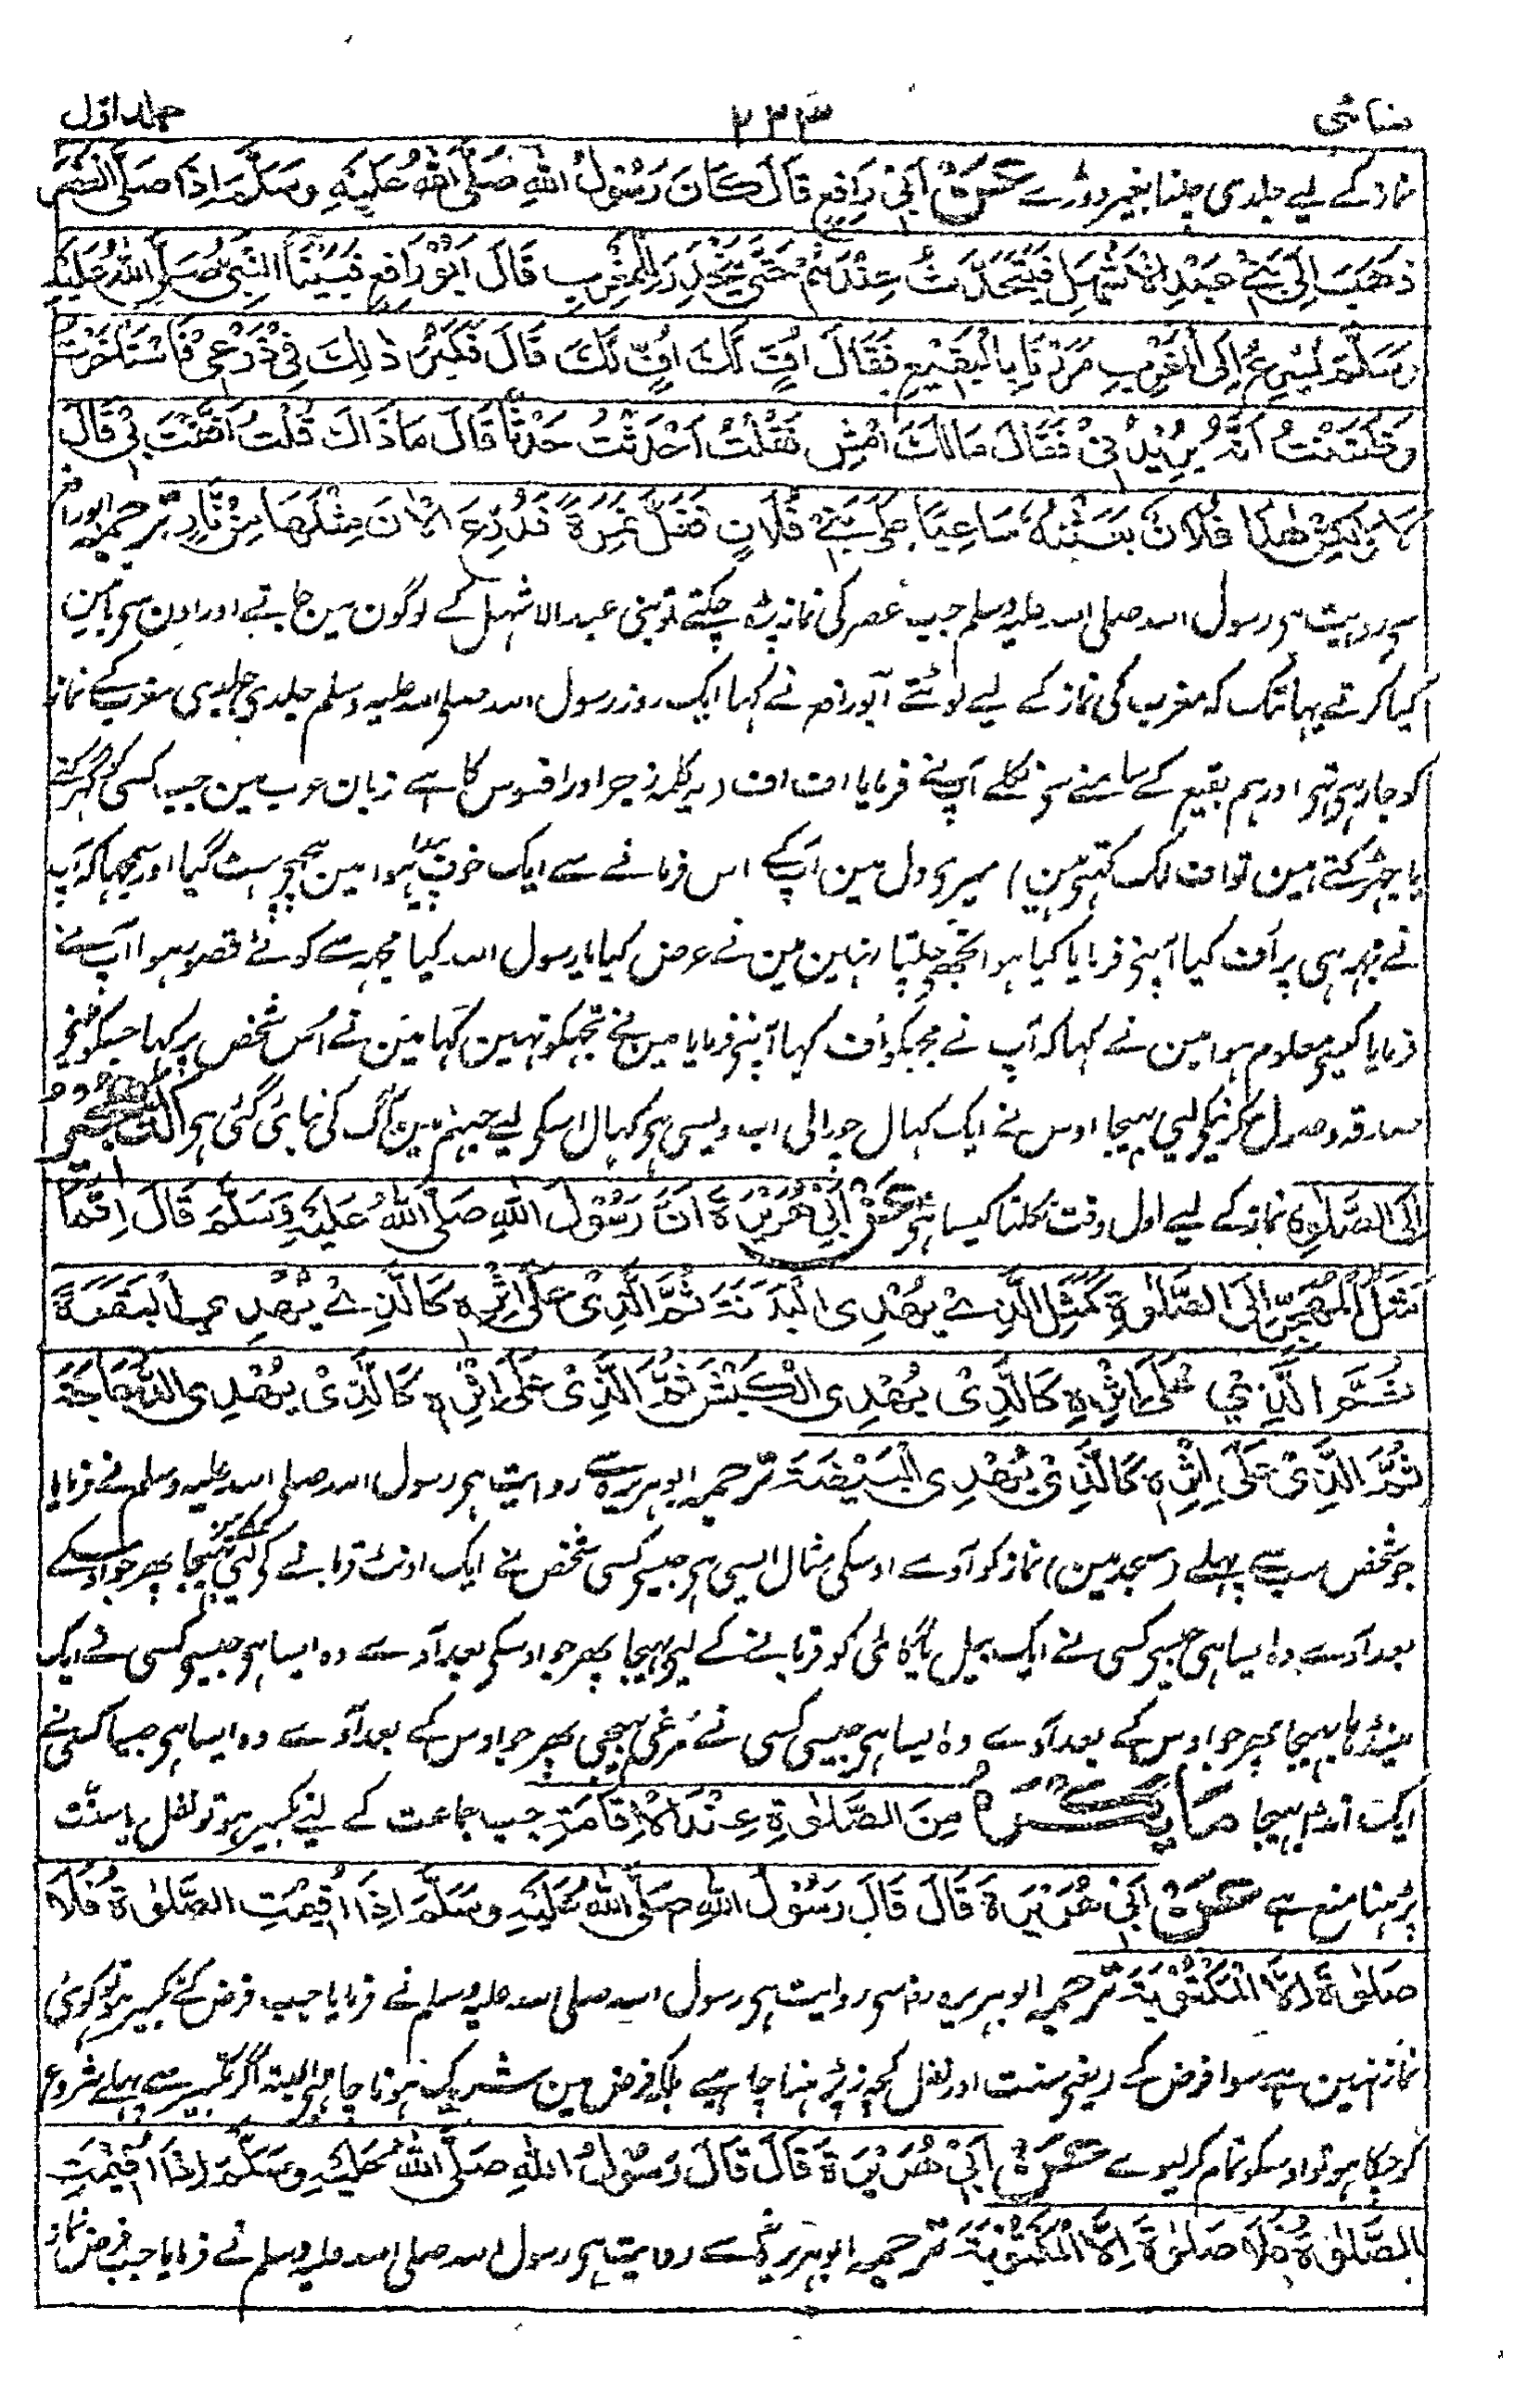 نسائی ۲۳۳ جلد اوّل
نماز کے لیے جلدی چلنا بغیر دوڑے عَنْ اَبِیْ رَافِعٍ قَالَ کَانَ رَسُوْلُ اللّٰہِ صَلَّی اللّٰہُ عَلَیْہِ وَسَلَّمَ اِذَا صَلَّی الْعَصْرَ
ذَھَبَ اِلٰی بَنِیْ عَبْدِ الْاَشْہَلِ فَیَتَحَدَّثُ عِنْدَھُمْ حَتّٰی یَنْحَدِرَ لِلْمَغْرِبِ قَالَ اَبُوْ رَافِعٍ فَبَیْنَمَا النَّبِیُّ صَلَّی اللّٰہُ عَلَیْہِ
وَسَلَّمَ یُسْرِعُ اِلَی الْمَغْرِبِ مَرَرْنَا بِالْبَقِیْعِ فَقَالَ اُفٍّ لَکَ اُفٍّ لَکَ قَالَ فَکَبُرَ ذٰلِکَ فِیْ ذَرْعِیْ فَاسْتَاْخَرْتُ
وَظَنَنْتُ اَنَّہٗ یُرِیْدُنِیْ فَقَالَ مَالَکَ اَمْشِ فَقُلْتُ اَحْدَثْتُ حَدَثًا قَالَ مَا ذَاکَ قُلْتُ اَفَّفْتَ بِیْ قَالَ
لَا وَلٰکِنْ ھٰذَا فُلَانٌ بَعَثْتُہٗ سَاعِیًا عَلٰی بَنِیْ فُلَانٍ فَغَلَّ نَمِرَۃً فَدُرِّعَ الْاٰنَ مِثْلَھَا مِنْ نَّارٍ ترجمہ ابو رافع
سے روایت ہی رسول اللہ صلی اللہ علیہ وسلم جب عصر کی نماز پڑہ چکتے تو بنی عبد الاشہل کے لوگون مین جاتے اور اون سے باتین
کیا کرتے یہانتک کہ مغرب کی نماز کے لیے لوٹتے ابو رافع نے کہا ایک روز رسول اللہ صلی اللہ علیہ وسلم جلدی جلدی مغرب کے نماز
کو جا رہی تہے اور ہم بقیع کے سامنے سے نکلے آپنے فرمایا اف اف (یہ کلمہ زجر اور افسوس کا ہے زبان عرب مین جب کسی کو گہرکتے
یا جہڑکتے ہین تو اف لک کہتے ہین) میرے دل مین آپ کے اس فرمانے سے ایک خوف پیدا ہوا مین پیچہے ہٹ گیا اور سمجہا کہ آپ
نے مجہہ ہی پر اُف کیا آپنے فرمایا کیا ہوا تجھے چلتا نہین مین نے عرض کیا یا رسول اللہ کیا مجہہ سے کوئے قصور ہوا آپ نے
فرمایا کیسے معلوم ہوا مین نے کہا کہ آپ نے مجہکو اُف کہا آپنے فرمایا مین نے تجہکو نہین کہا مین نے اُس شخص پر کہا جسکو مین نے
صدقہ وصول کرنیکو لیے بہیجا اوس نے ایک کہال چورالی اب ویسی ہی کہال اسکے لیے جہنم مین آگ کی بنائی گئی ہی اَلتَّھْجِیْرُ
اِلَی الصَّلٰوۃِ نماز کے لیے اول وقت نکلنا کیسا ہی عَنْ اَبِیْ ھُرَیْرَۃَ اَنَّ رَسُوْلَ اللّٰہِ صَلَّی اللّٰہُ عَلَیْہِ وَسَلَّمَ قَالَ اِنَّمَا
مَثَلُ الْمُھَجِّرِ اِلَی الصَّلٰوۃِ کَمَثَلِ الَّذِیْ یُھْدِی الْبَدَنَۃَ ثُمَّ الَّذِیْ عَلٰی اِثْرِہٖ کَالَّذِیْ یُھْدِی الْبَقَرَۃَ
ثُمَّ الَّذِیْ عَلٰی اِثْرِہٖ کَالَّذِیْ یُھْدِی الْکَبْشَ ثُمَّ الَّذِیْ عَلٰی اِثْرِہٖ کَالَّذِیْ یُھْدِی الدَّجَاجَۃَ
ثُمَّ الَّذِیْ عَلٰی اِثْرِہٖ کَالَّذِیْ یُھْدِی الْبَیْضَۃَ ترجمہ ابو ہریرہ سے روایت ہی رسول اللہ صلی اللہ علیہ وسلم نے فرمایا
جو شخص سب سے پہلے (مسجد مین) نماز کو آوے اوسکی مثال ایسی ہی جیسے کسی شخص نے ایک اونٹ قربانے کو لیے بہیجا پھر جو اوسکے
بعد آوے وہ ایسا ہی جیسے کسی نے ایک بیل یا گائی کو قربانے کے لیے بہیجا پھر جو اوسکے بعد آوے وہ ایسا ہی جیسے کسی نے ایک
مینڈہا بہیجا پھر جو اوس کے بعد آوے وہ ایسا ہی جیسی کسی نے مرغی بہیجی پھر جو اوس کے بعد آوے وہ ایسا ہی جیسا کسی نے
ایک انڈا بہیجا مَا یُکْرَہُ مِنَ الصَّلٰوۃِ عِنْدَ الْاِقَامَۃِ جب جماعت کے لیے تکبیر ہو تو نفل یا سنّت
پڑہنا منع ہے عَنْ اَبِیْ ھُرَیْرَۃَ قَالَ قَالَ رَسُوْلُ اللّٰہِ صَلَّی اللّٰہُ عَلَیْہِ وَسَلَّمَ اِذَا اُقِیْمَتِ الصَّلٰوۃُ فَلَا
صَلٰوۃَ اِلَّا الْمَکْتُوْبَۃَ ترجمہ ابو ہریرہ رض سے روایت ہی رسول اللہ صلی اللہ علیہ وسلم نے فرمایا جب فرض کے تکبیر ہو تو کوئی
نماز نہین ہے سوا فرض کے (یعنی سنت اور نفل کچہہ نہ پڑہنا چاہیے بلکہ فرض مین شریک ہونا چاہیے البتہ اگر تکبیر سے پہلے شروع
کر چکا ہو تو اوسکو تمام کر لیوے عَنْ اَبِیْ ھُرَیْرَۃَ قَالَ قَالَ رَسُوْلُ اللّٰہِ صَلَّی اللّٰہُ عَلَیْہِ وَسَلَّمَ اِذَا اُقِیْمَتِ
الصَّلٰوۃُ فَلَا صَلٰوۃَ اِلَّا الْمَکْتُوْبَۃَ ترجمہ ابو ہریرہ سے روایت ہی رسول اللہ صلی اللہ علیہ وسلم نے فرمایا جب فرض نماز